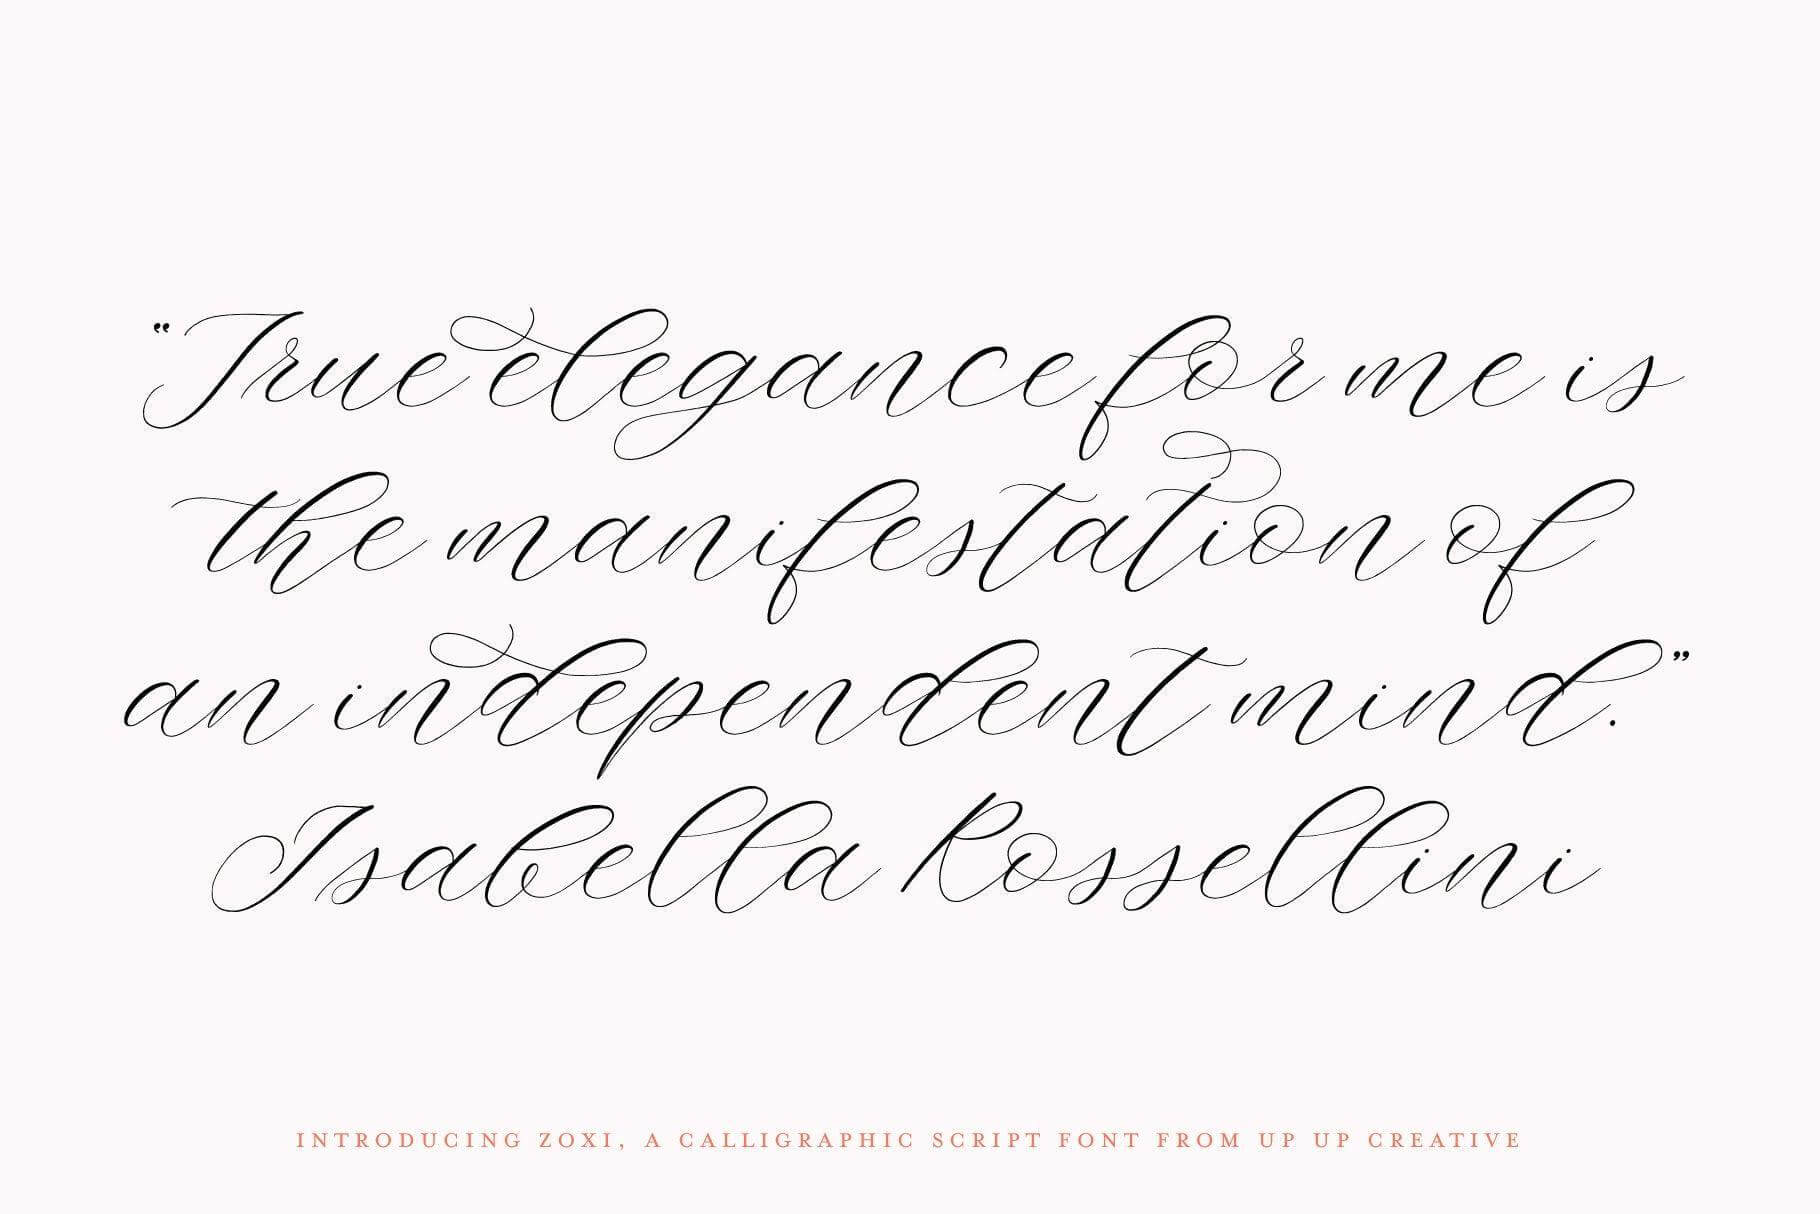 “True elegance for me is
the manifestation of
an independent mind.”
Isabella Rossellini
INTRODUCING ZOXI, A CALLIGRAPHIC SCRIPT FONT FROM UP UP CREATIVE